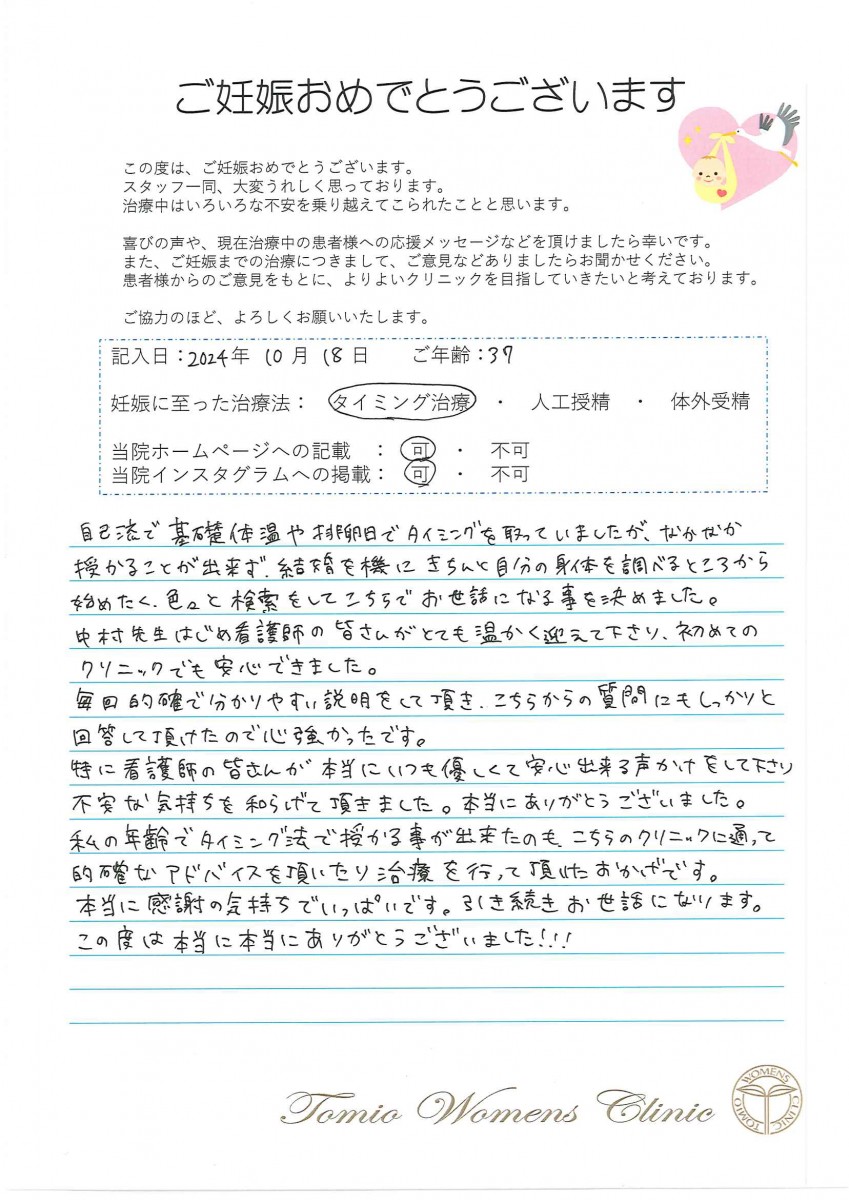 ご妊娠おめでとうございます
この度は、ご妊娠おめでとうございます。
スタッフ一同、大変うれしく思っております。
治療中はいろいろな不安を乗り越えてこられたことと思います。
喜びの声や、現在治療中の患者様への応援メッセージなどを頂けましたら幸いです。
また、ご妊娠までの治療につきまして、ご意見などありましたらお聞かせください。
患者様からのご意見をもとに、よりよいクリニックを目指していきたいと考えております。
ご協力のほど、よろしくお願いいたします。
記入日:2024年 10月 18日 ご年齢:37
妊娠に至った治療法: タイミング治療 ・ 人工授精 ・ 体外受精
当院ホームページへの記載 : 可 ・ 不可
当院インスタグラムへの掲載: 可 ・ 不可
自己流で基礎体温や排卵日でタイミングを取っていましたが、なかなか
授かることが出来ず、結婚を機にきちんと自分の身体を調べるところから
始めたく、色々と検索をしてこちらでお世話になる事を決めました。
中村先生はじめ看護師の皆さんがとても温かく迎えて下さり、初めての
クリニックでも安心できました。
毎回的確で分かりやすい説明をして頂き、こちらからの質問にもしっかりと
回答して頂けたので心強かったです。
特に看護師の皆さんが本当にいつも優しくて安心出来る声かけをして下さり
不安な気持ちを和らげて頂きました。本当にありがとうございました。
私の年齢でタイミング法で授かる事が出来たのも、こちらのクリニックに通って
的確なアドバイスを頂いたり治療を行って頂けたおかげです。
本当に感謝の気持ちでいっぱいです。引き続きお世話になります。
この度は本当に本当にありがとうございました!!!
Tomio Womens Clinic
TOMIO WOMENS CLINIC